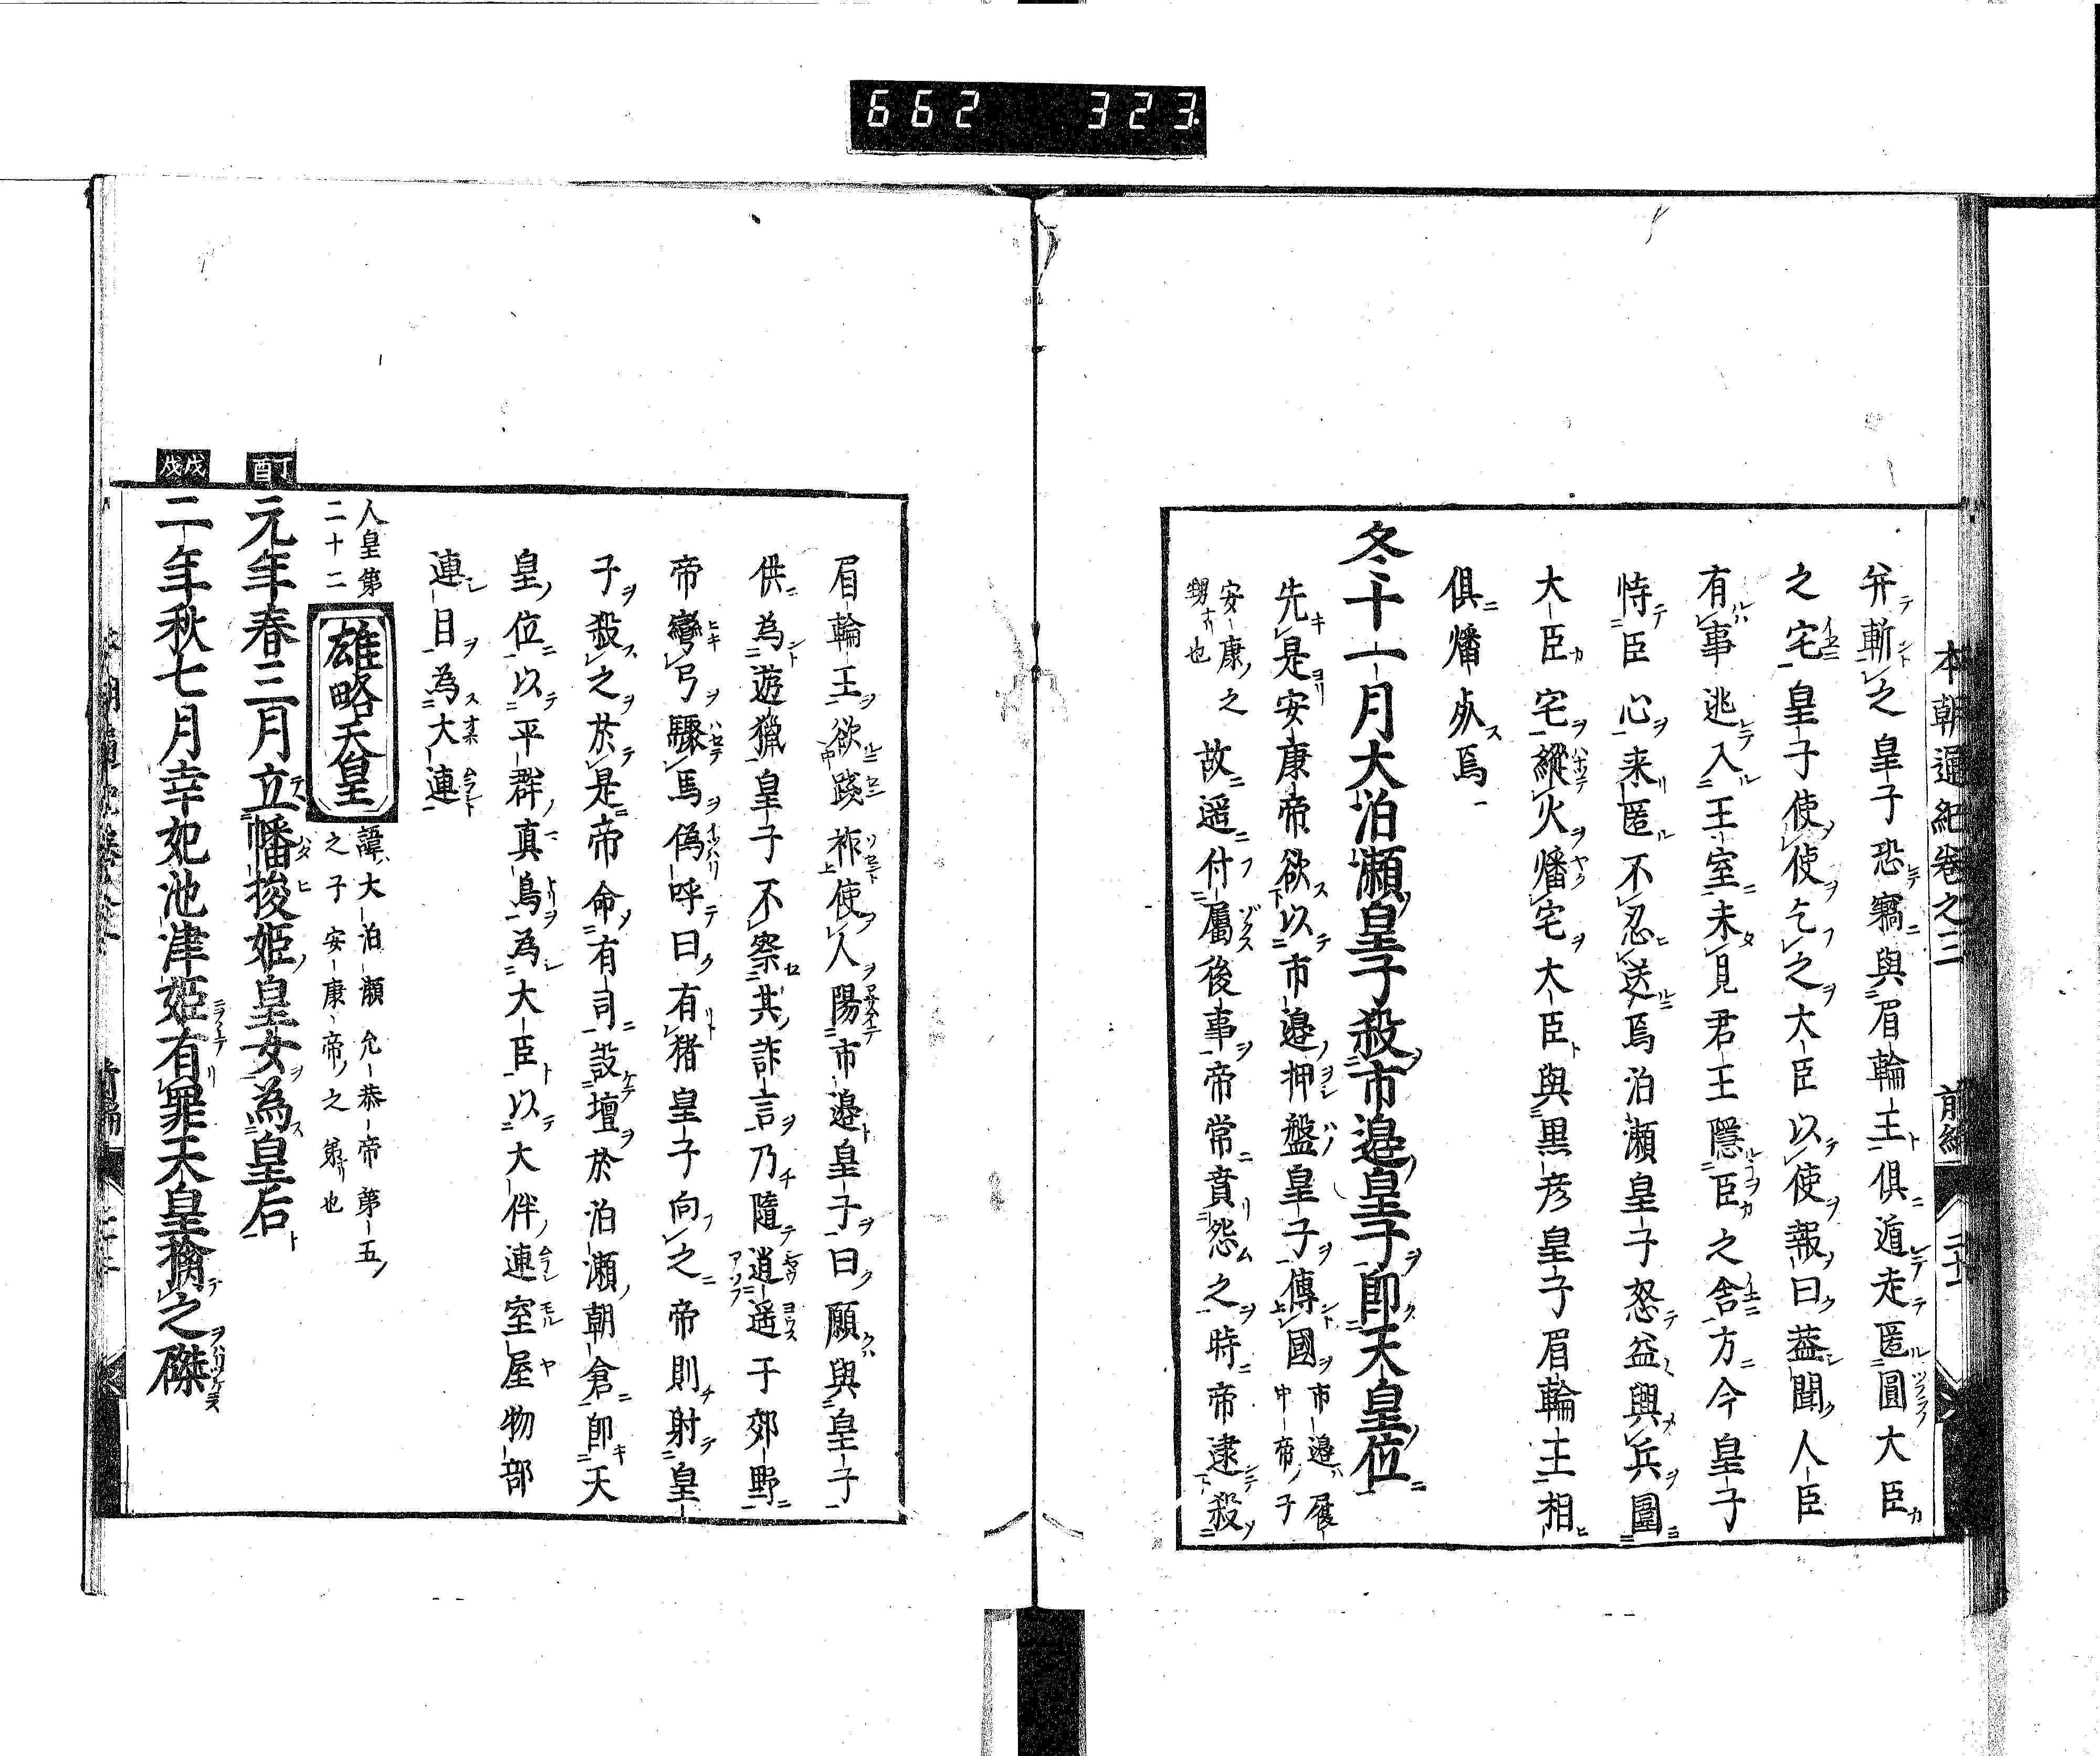 662 323
本朝通紀卷之二 前編 二十一
并斬之皇子恐竊與眉輪王俱遁走匿圓大臣
之宅皇子使使乞之大臣以使報曰蓋聞人臣
有事逃入王室未見君王隱臣之舍方今皇子
恃臣心来匿不忍送焉泊瀬皇子怒益興兵圍
大臣宅縱火燔宅大臣與黒彦皇子眉輪王相
俱燔死焉
冬十一月大泊瀬皇子殺市邉皇子即天皇位
先是安康帝欲以市邉押盤皇子傳國市邉履
中帝子
安康之
甥也故遥付屬後事帝常賁怨之時帝逮殺
眉輪王欲踐祚使人陽市邉皇子曰願與皇子
供為遊獵皇子不察其詐言乃隨逍遥于郊野
帝彎弓驟馬偽呼曰有猪皇子向之帝則射皇
子殺之於是帝命有司設壇於泊瀬朝倉即天
皇位以平群真鳥為大臣以大伴連室屋物部
連目為大連
人皇第
二十二
雄略天皇
諱大泊瀬允恭帝第五
之子安康帝之弟也
丁酉
元年春三月立幡梭姫皇女為皇后
戊戌
二年秋七月幸妃池津姫有罪天皇擒之磔